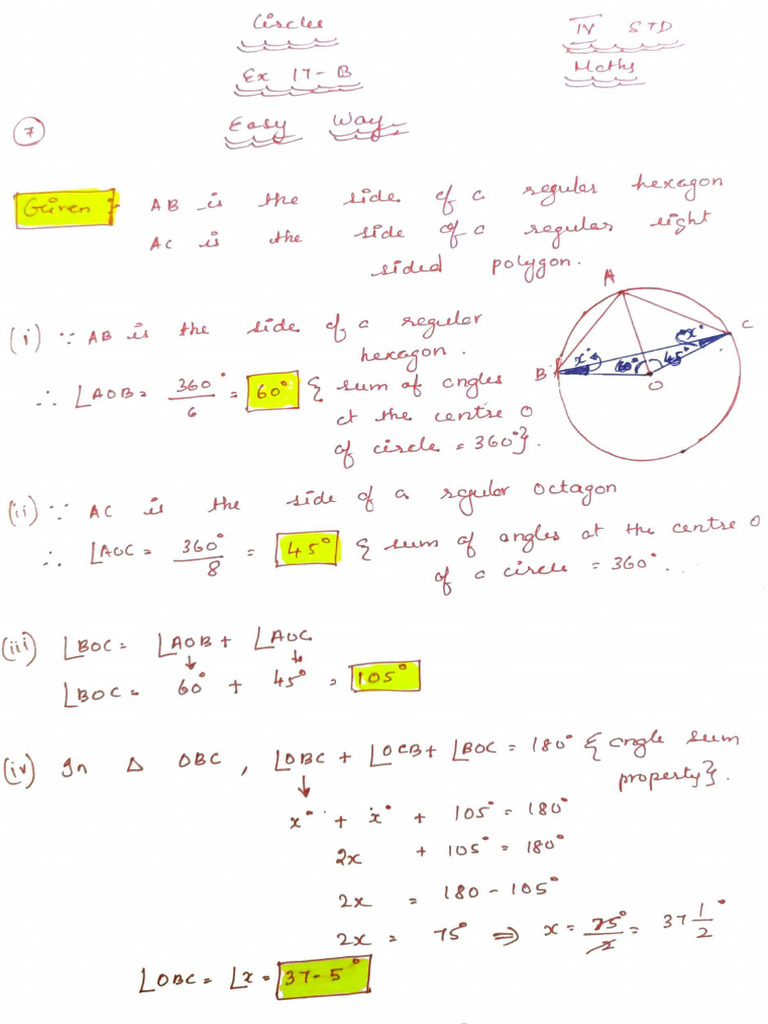 Circles
IV STD
Ex 17-B
Maths
7
Easy Way
Given :- AB is the side of a regular hexagon
AC is the side of a regular eight
sided polygon.
(i) ∵ AB is the side of a regular
hexagon.
∴ ∠AOB = 360°/6 = 60° { sum of angles
at the centre O
of circle = 360°}.
A
B
C
O
x°
x°
60°
45°
(ii) ∵ AC is the side of a regular octagon
∴ ∠AOC = 360°/8 = 45° { sum of angles at the centre O
of a circle = 360°...
(iii) ∠BOC = ∠AOB + ∠AOC
∠BOC = 60° + 45° = 105°
(iv) In Δ OBC, ∠OBC + ∠OCB + ∠BOC = 180° { angle sum
property}.
x° + x° + 105° = 180°
2x + 105° = 180°
2x = 180 - 105°
2x = 75° ⇒ x = 75°/2 = 37 1/2°
∠OBC = ∠x = 37-5°